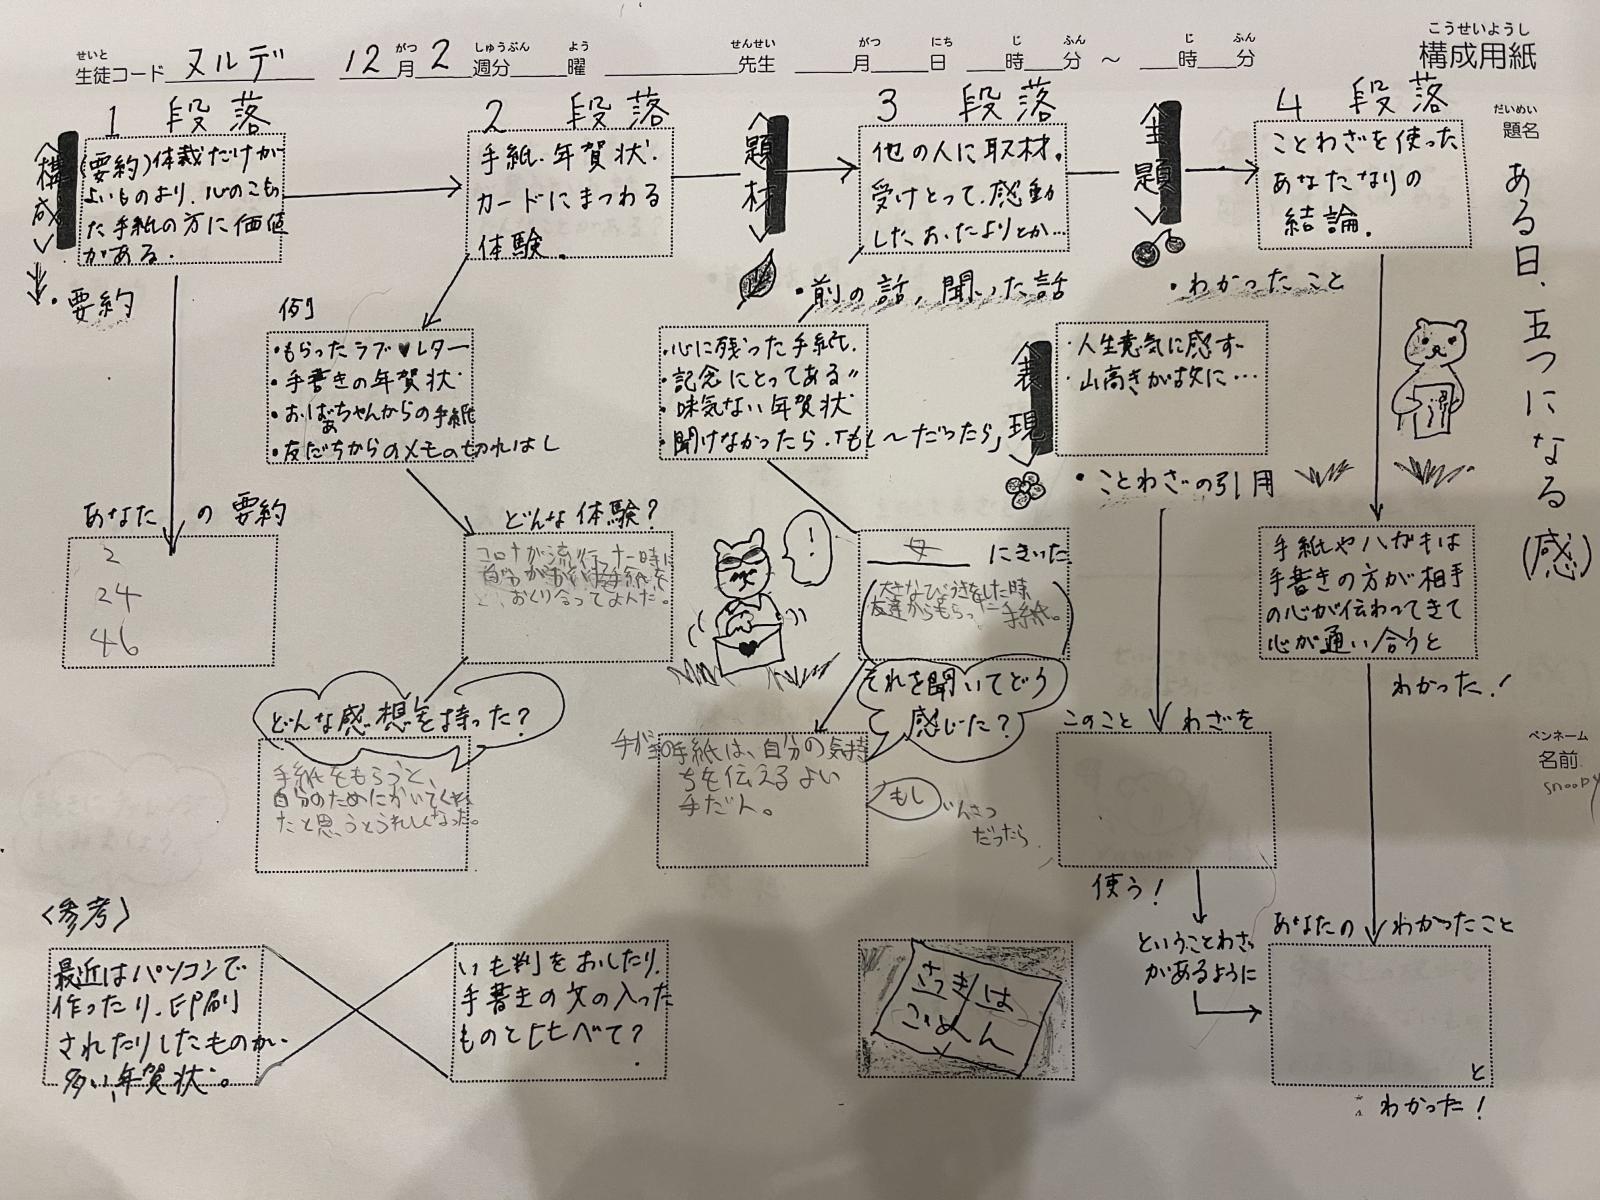 こうせいようし
構成用紙
せいと
生徒コード ヌルデ 12 がつ 月 2 しゅうぶん 週分 よう 曜 せんせい 先生 がつ 月 にち 日 じ 時 ふん 分 ～ じ 時 ふん 分
だいめい
題名
ある日、五つになる(感)
ペンネーム
名前
snoopy
1 段落
<構成>
(要約)体裁だけが
よいものより、心のこもっ
た手紙の方に価値
がある。
・要約
2 段落
手紙、年賀状、
カードにまつわる
体験。
<題材>
3 段落
他の人に取材。
受けとって、感動
した、おたよりとか…
・前の話, 聞いた話
<主題>
・わかったこと
4 段落
ことわざを使った
あなたなりの
結論。
例
・もらったラブ♥レター
・手書きの年賀状
・おばあちゃんからの手紙
・友だちからのメモの切れはし
・心に残った手紙。
・記念にとってある〃
・味気ない年賀状
・聞けなかったら、「もし〜だったら」
<表現>
・人生意気に感ず
・山高きが故に…
・ことわざの引用
あなたの要約
2
24
46
どんな体験？
コロナが流行った時に
おくり合ってよんだ。
！
母にきいた
(大きなびょうきをした時
友達からもらった手紙。)
手紙やハガキは
手書きの方が相手
の心が伝わってきて
心が通い合うと
わかった！
どんな感想を持った？
手紙をもらうと、
自分のためにかいてくれ
たと思うとうれしくなった。
それを聞いてどう
感じた？
手がきの手紙は、自分の気持
ちを伝えるよい
手だん。
もし
いんさつ
だったら
このことわざを
使う！
ということわざ
があるように
あなたのわかったこと
と
わかった！
<参考>
最近はパソコンで
作ったり、印刷
されたりしたものが
多い年賀状。
いも判をおしたり、
手書きの文の入った
ものと比べて？